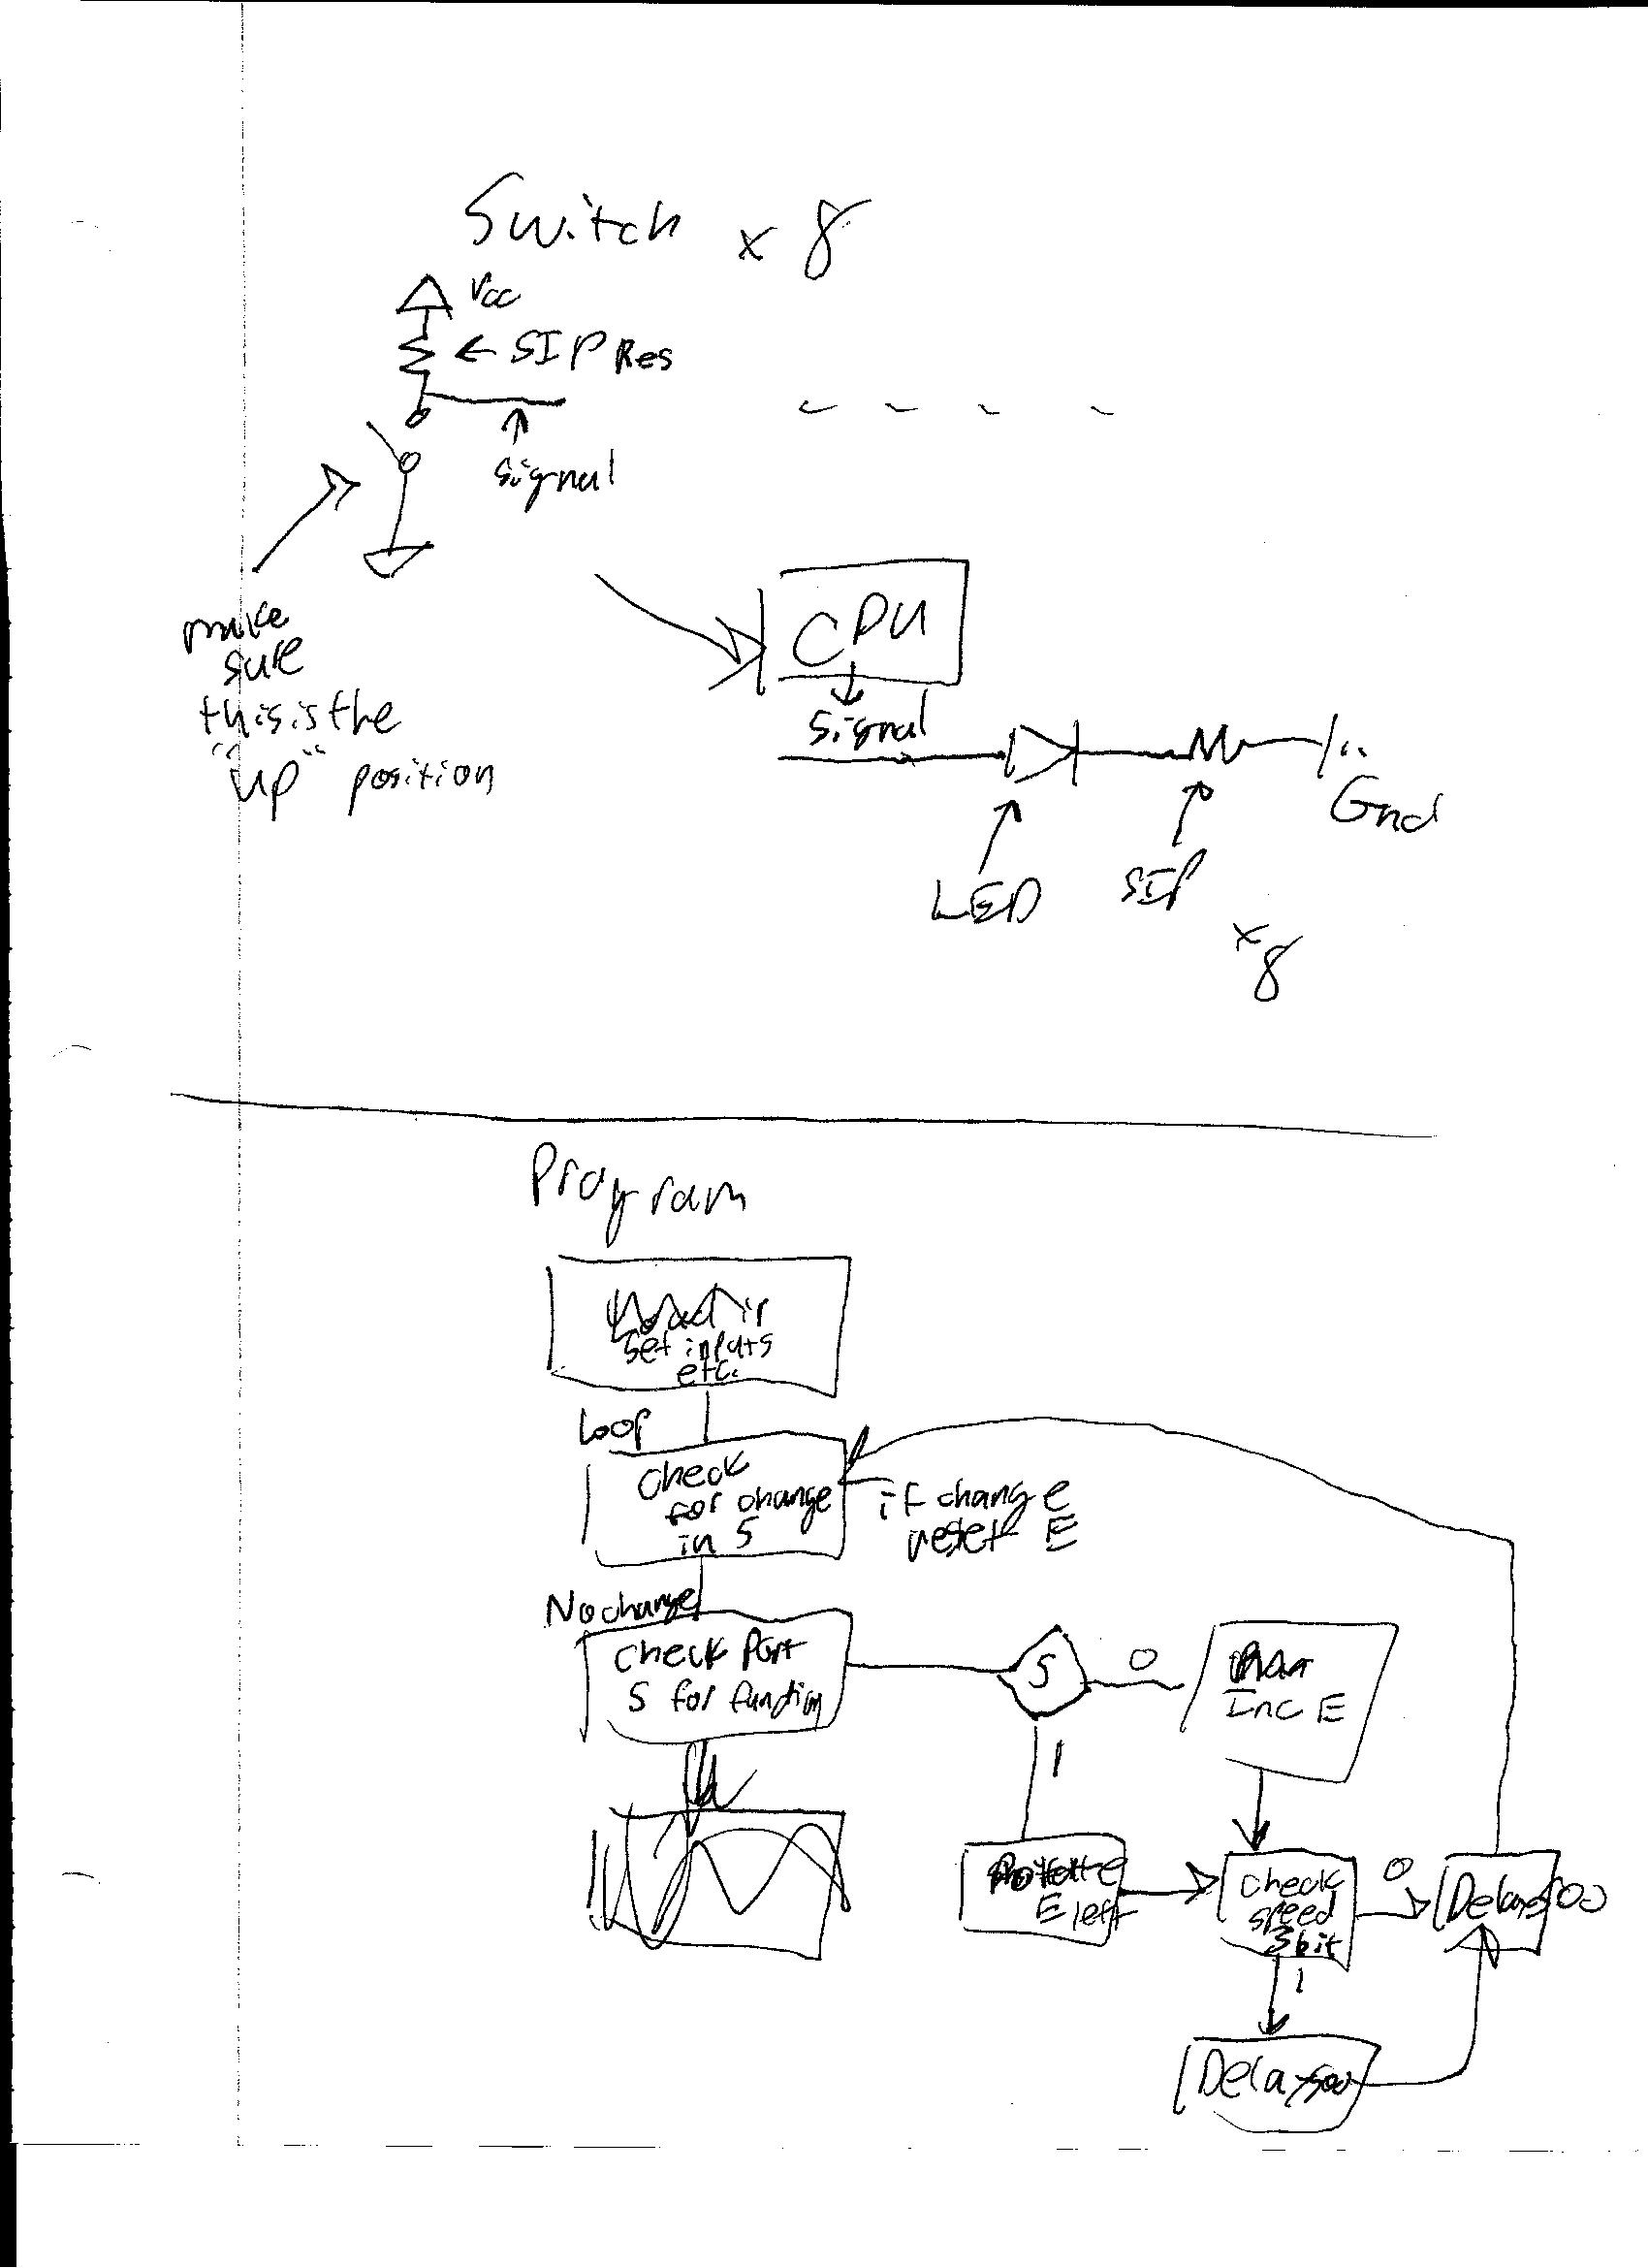 Switch x 8
Vcc
← SIP Res
signal
make
sure
this is the
"up" position
CPU
Signal
LED
SIP
Gnd
x 8
Program
set inputs
etc.
Loop
check
for change
in S
if change
reset E
No change
check Port
S for function
S
0
Inc E
1
Rotate
E left
check
speed
bit
0
Delay 500
1
Delay 500